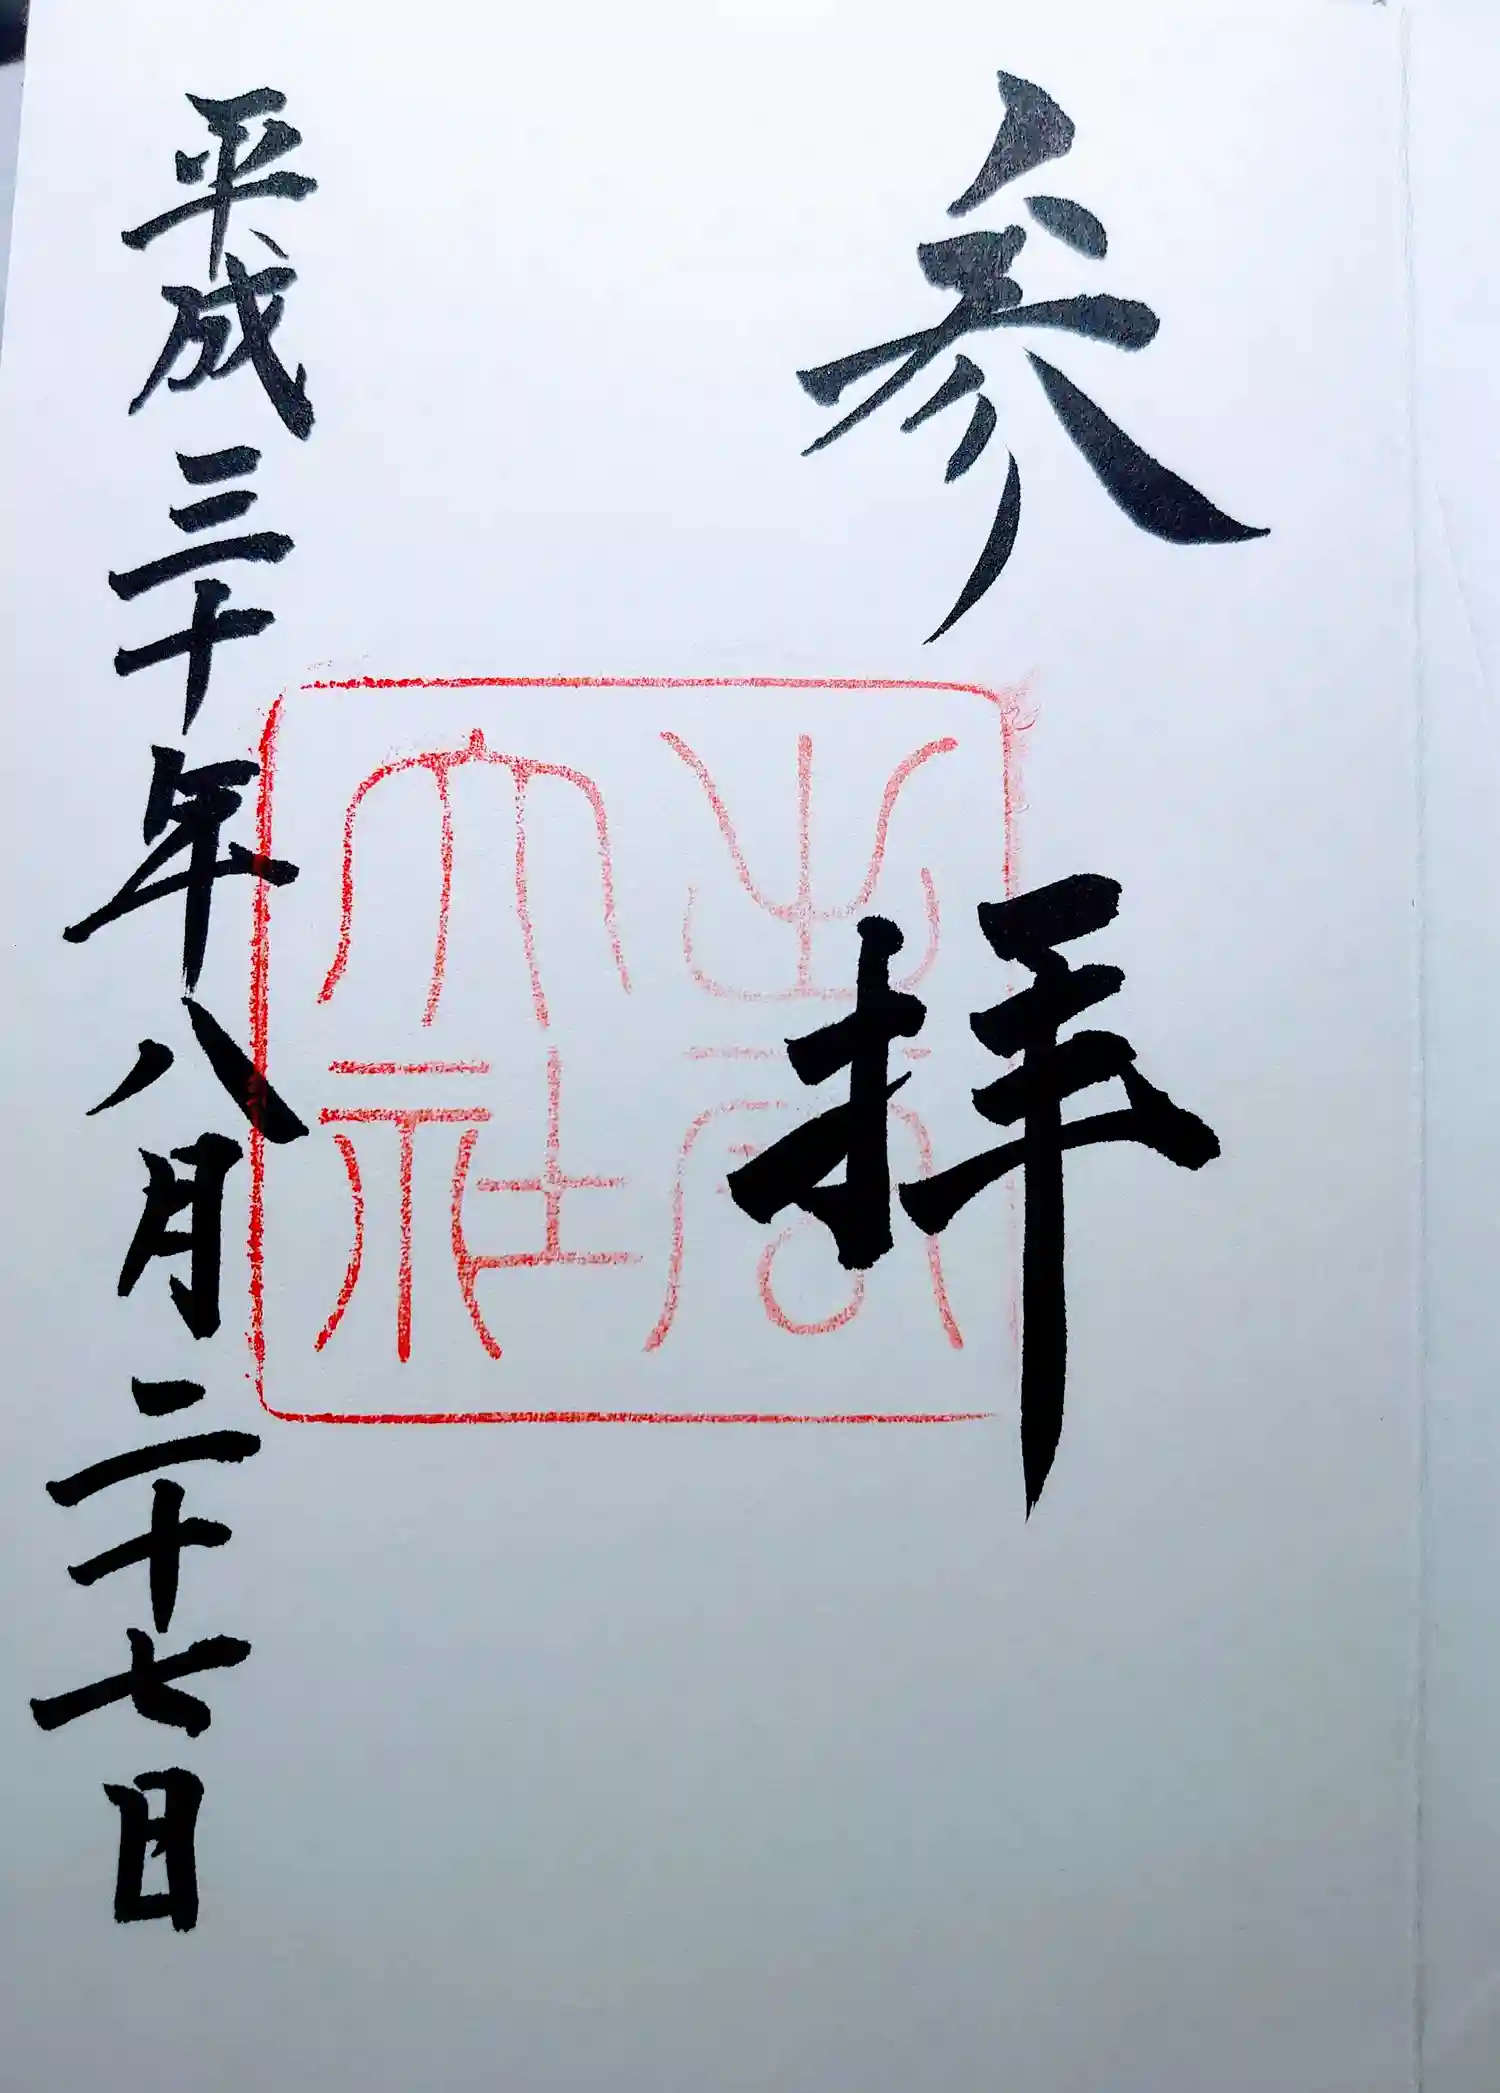 参拝
出雲
大社
平成三十年八月二十七日